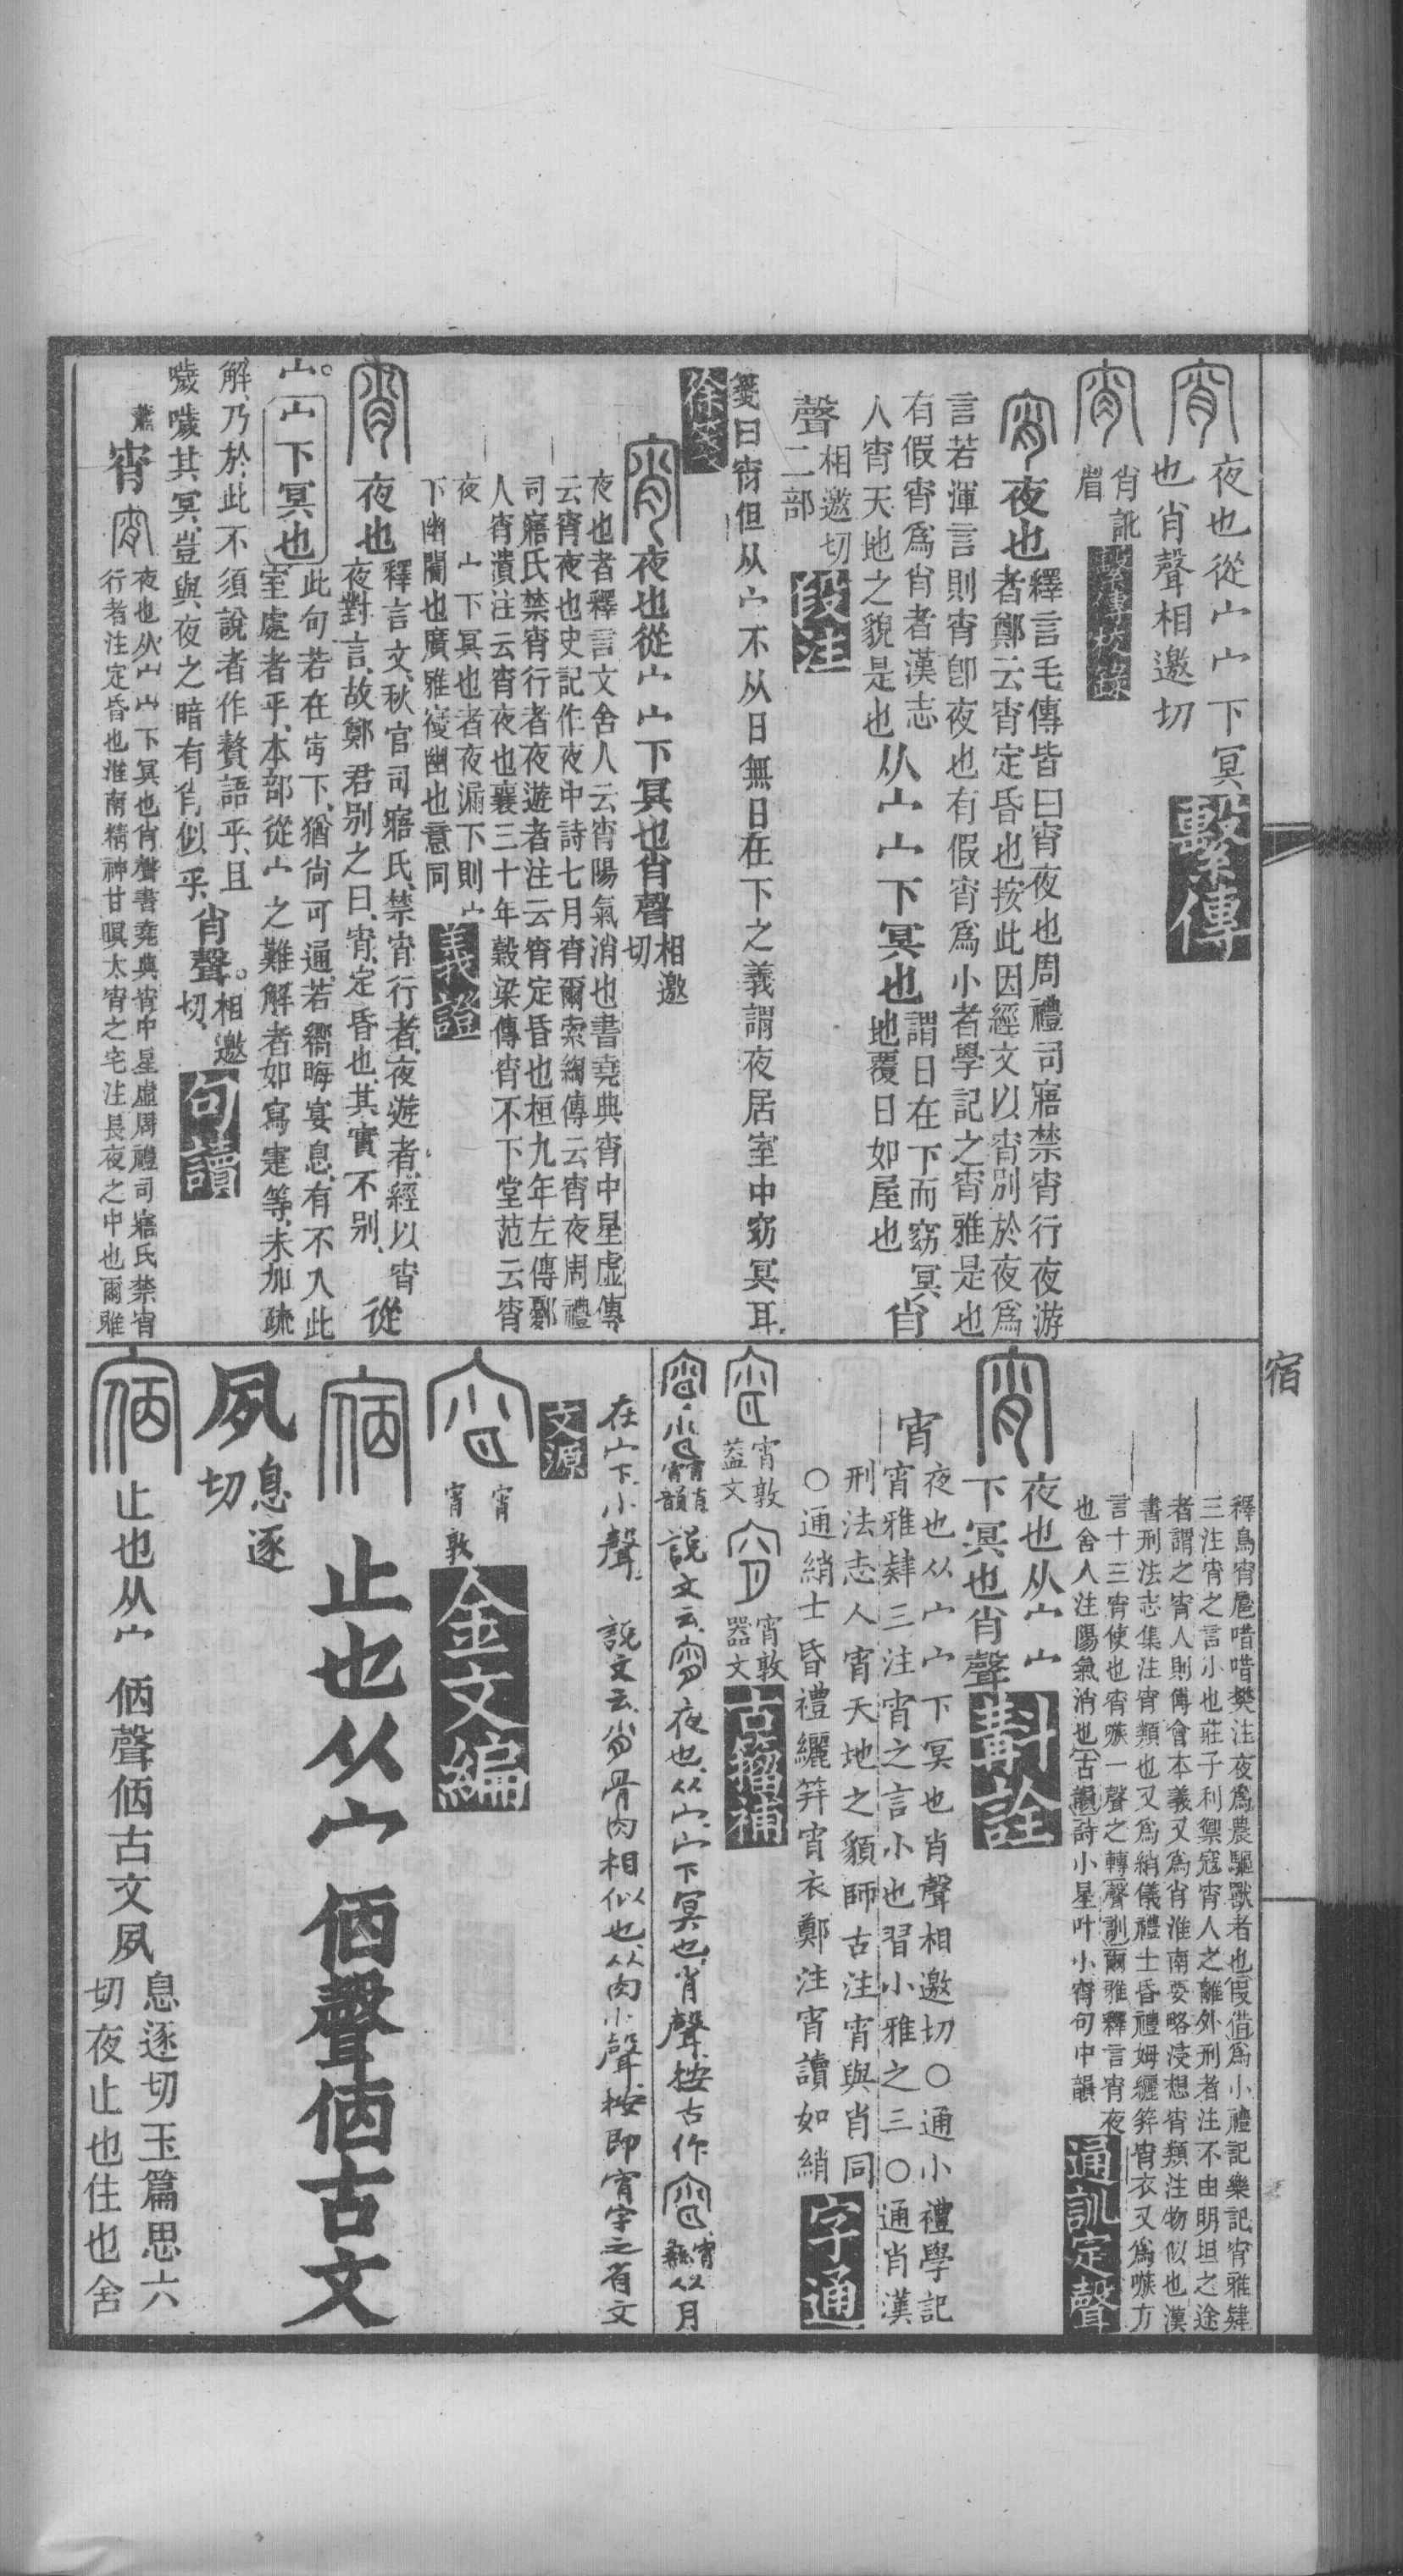 宿
夜也從宀宀下冥
也肖聲相邀切
繫傳
肖訛
㫺
繫傳校錄
夜也
釋言毛傳皆曰宵夜也周禮司寤禁宵行夜游
者鄭云宵定昏也按此因經文以宵別於夜爲
言若渾言則宵卽夜也有假宵爲小者學記之宵雅是也
有假宵爲肖者漢志
人宵天地之貌是也
从宀宀下冥也
謂日在下而窈冥
地覆日如屋也
肖
聲
相邀切
二部
段注
箋曰宵但从宀不从日無日在下之義謂夜居室中窈冥耳
徐箋
夜也從宀宀下冥也肖聲
相邀
切
夜也者釋言文舍人云宵陽氣消也書堯典宵中星虛傳
云宵夜也史記作夜中詩七月宵爾索綯傳云宵夜周禮
司寤氏禁宵行者夜遊者注云宵定昏也桓九年左傳鄾
人宵潰注云宵夜也襄三十年穀梁傳宵不下堂范云宵
夜 宀下冥也者夜漏下則宀
下幽闇也廣雅㝛幽也意同
義證
夜也
釋言文秋官司寤氏禁宵行者夜遊者經以宵
夜對言故鄭君別之曰宵定昏也其實不別
從
宀宀下冥也
此句若在宀下猶尚可通若嚮晦宴息有不入此
室處者乎本部從宀之難解者如寫寁等未加疏
解乃於此不須說者作贅語乎且
噦噦其冥豈與夜之暗有肖似乎
肖聲
相邀
切
句讀
蕭
宵
夜也从宀宀下冥也肖聲書堯典宵中星虛周禮司寤氏禁宵
行者注定昏也淮南精神甘瞑太宵之宅注長夜之中也爾雅
釋鳥宵扈嘖嘖樊注夜爲農驅獸者也叚借爲小禮記樂記宵雅肄
三注宵之言小也莊子列禦寇宵人之離外刑者注不由明坦之途
者謂之宵人則傅會本義又爲肖淮南要略浸想宵類注物似也漢
書刑法志集注宵類也又爲綃儀禮士昏禮姆纚笄宵衣又爲嗾方
言十三宵使也宵嗾一聲之轉聲訓爾雅釋言宵夜
也舍人注陽氣消也古韻詩小星叶小宵句中韻
通訓定聲
夜也从宀宀
下冥也肖聲
斠詮
宵
夜也从宀宀下冥也肖聲相邀切○通小禮學記
宵雅肄三注宵之言小也習小雅之三○通肖漢
刑法志人宵天地之䫉師古注宵與肖同
○通綃士昏禮纚笄宵衣鄭注宵讀如綃
字通
宵敦
葢文
宵敦
器文
古籀補
說文云宵夜也从宀宀下冥也肖聲按古作
从月
在宀下小聲 說文云肖骨肉相似也从肉小聲按卽宵字之省文
文源
宵
宵敦
金文編
止也从宀㐁聲㐁古文
夙
息逐
切
止也从宀㐁聲㐁古文夙
息逐切玉篇思六
切夜止也住也舍